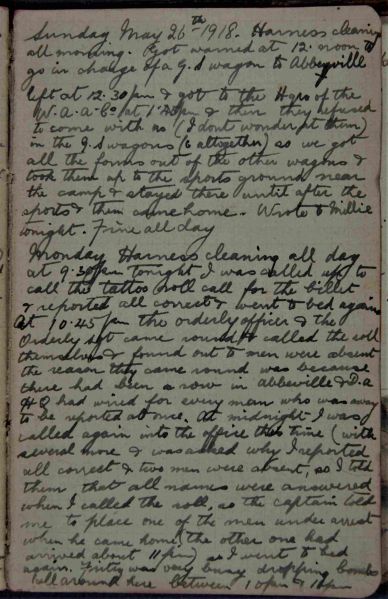 Sunday May 26th 1918. Harness cleaning
all morning. Got warned at 12 noon to
go in charge of a G.S wagon to Abbeyville
left at 12.30pm & got to the Hqrs of the
W.A.A.Co at 1.45pm & then they refused
to come with us (I dont wonder at them)
in the G.S wagons (6 altogether) so we got
all the forms out of the other wagons &
took them up to the sports ground near
the camp & stayed there until after the
sports & then came home. Wrote to Millie
tonight. Fine all day
Monday Harness cleaning all day
at 9.30pm tonight I was called up to
call the tattoo roll call for the billet
& reported all correct & went to bed again
At 10.45pm the orderly officer & the
Orderly Sgt came round & called the roll
themselves & found out to men were absent
the reason they came round was because
there had been a row in Abbeville & D.a
HQ had wired for every man who was away
to be reported at once. At midnight I was
called again into the office this time (with
several more & was asked why I reported
all correct & two men were absent, so I told
them that all names were answered
when I called the roll, so the captain told
me to place one of the men under arrest
when he came home (the other one had
arrived about 11pm) so I went to bed
again. Fritz was very busy dropping bombs
all around here between 10pm & 11pm